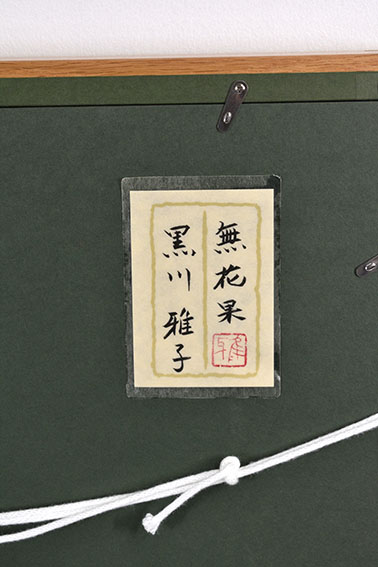 無花果
黒川雅子